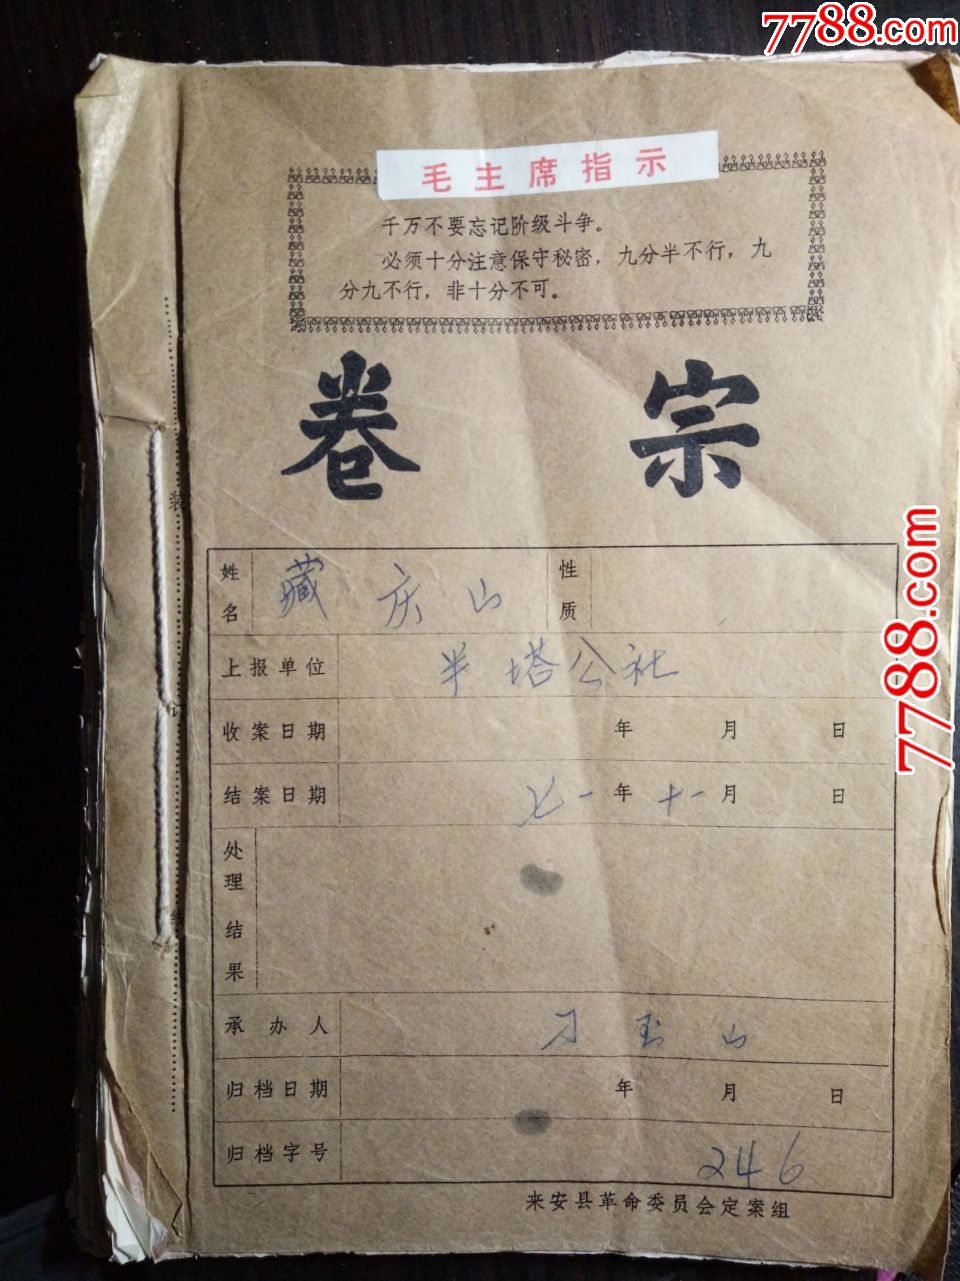 7788.com
毛主席指示
千万不要忘记阶级斗争。
必须十分注意保守秘密，九分半不行，九
分九不行，非十分不可。
卷 宗
装
订
线
姓名 藏庆山 性质
上报单位 半塔公社
收案日期 年 月 日
结案日期 七一年 十一月 日
处理结果
承办人 刁玉山
归档日期 年 月 日
归档字号 246
来安县革命委员会定案组
7788.com